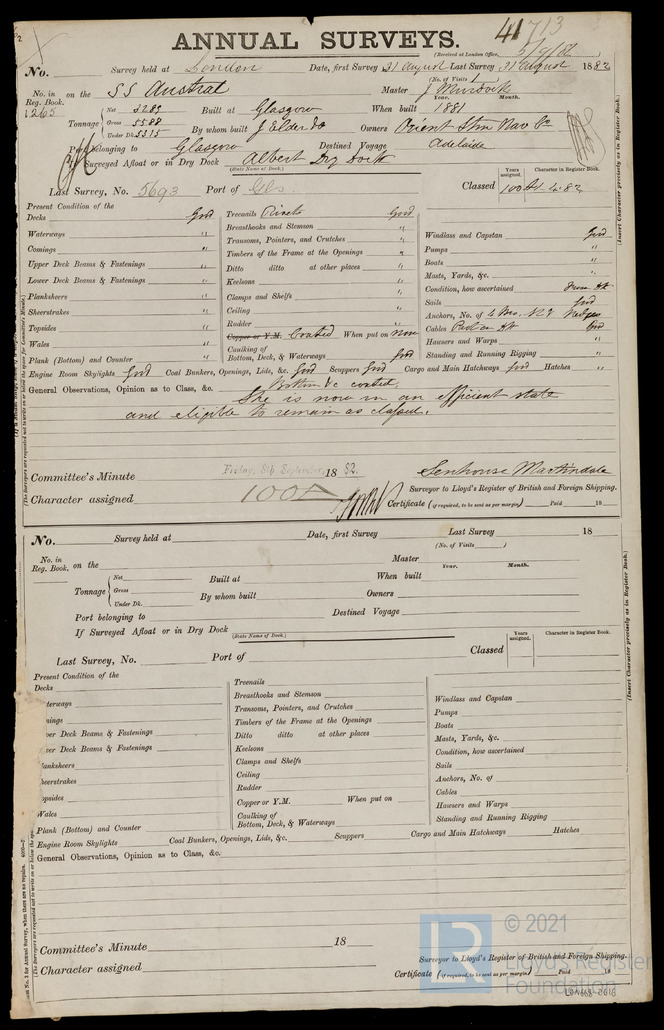 41713
ANNUAL SURVEYS.
(Received at London Office,
No. Survey held at London Date, first Survey 31 August Last Survey 31 August 1882
(No. of Visits 1)
No. in Reg. Book. on the SS Austral Master J Murdoch
1265
Year. Month.
Tonnage Net 3289 Built at Glasgow When built 1881
Gross 5588 By whom built J Elder & Co Owners Orient Stm Nav Co
Under Dk. 5315
Port belonging to Glasgow Destined Voyage Adelaide
If Surveyed Afloat or in Dry Dock Albert Dry Dock
(State Name of Dock.)
Years assigned. Character in Register Book.
Last Survey, No. 5693 Port of Gls. Classed 100 A1 4.82
(Insert Character precisely as in Register Book.)
Present Condition of the
Decks Good
Waterways "
Comings "
Upper Deck Beams & Fastenings "
Lower Deck Beams & Fastenings "
Planksheers "
Sheerstrakes "
Topsides "
Wales "
Plank (Bottom) and Counter "
Treenails Rivets Good
Breasthooks and Stemson "
Transoms, Pointers, and Crutches "
Timbers of the Frame at the Openings "
Ditto ditto at other places "
Keelsons "
Clamps and Shelfs "
Ceiling "
Rudder "
Copper or Y.M. Coated When put on now
Caulking of Bottom, Deck, & Waterways Good
Windlass and Capstan Good
Pumps "
Boats "
Masts, Yards, &c. "
Condition, how ascertained From Dk
Sails Good
Anchors, No. of
Cables Good
Hawsers and Warps "
Standing and Running Rigging "
Engine Room Skylights Good Coal Bunkers, Openings, Lids, &c. Good Scuppers Good Cargo and Main Hatchways Good Hatches "
General Observations, Opinion as to Class, &c. Bottom &c coated.
She is now in an efficient state
and eligible to remain as classed.
Committee's Minute Friday, 8th September, 1882.
Character assigned 100A
Senhouse Martindale
Surveyor to Lloyd's Register of British and Foreign Shipping.
Certificate (if required, to be sent as per margin) Paid 18
No. Survey held at Date, first Survey Last Survey 18
(No. of Visits )
No. in Reg. Book. on the Master
Year. Month.
Tonnage Net Built at When built
Gross By whom built Owners
Under Dk.
Port belonging to Destined Voyage
If Surveyed Afloat or in Dry Dock
(State Name of Dock.)
Years assigned. Character in Register Book.
Last Survey, No. Port of Classed
(Insert Character precisely as in Register Book.)
Present Condition of the
Decks
terways
mings
per Deck Beams & Fastenings
wer Deck Beams & Fastenings
lanksheers
heerstrakes
opsides
Wales
Plank (Bottom) and Counter
Treenails
Breasthooks and Stemson
Transoms, Pointers, and Crutches
Timbers of the Frame at the Openings
Ditto ditto at other places
Keelsons
Clamps and Shelfs
Ceiling
Rudder
Copper or Y.M. When put on
Caulking of Bottom, Deck, & Waterways
Windlass and Capstan
Pumps
Boats
Masts, Yards, &c.
Condition, how ascertained
Sails
Anchors, No. of
Cables
Hawsers and Warps
Standing and Running Rigging
Engine Room Skylights Coal Bunkers, Openings, Lids, &c. Scuppers Cargo and Main Hatchways Hatches
General Observations, Opinion as to Class, &c.
Committee's Minute 18
Character assigned
Surveyor to Lloyd's Register of British and Foreign Shipping.
Certificate (if required, to be sent as per margin) Paid 18
LR
© 2021
Lloyd's Register
Foundation